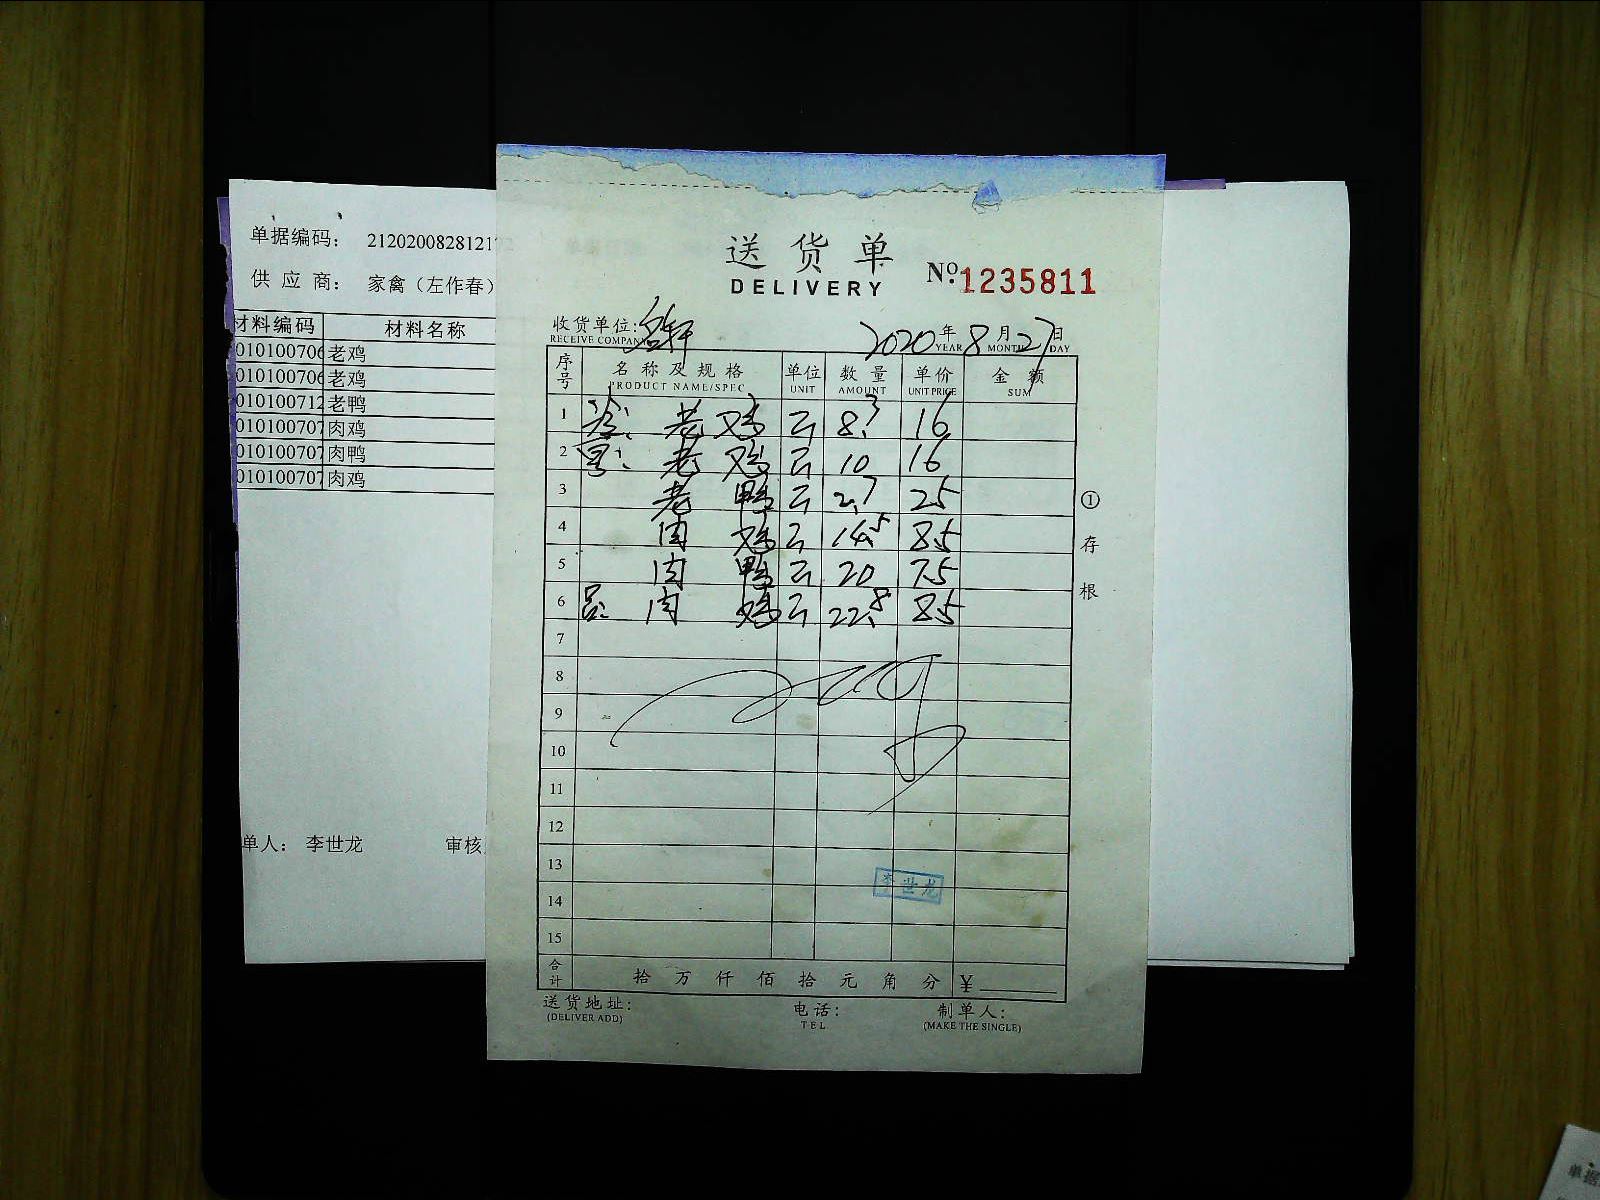 单据编码： 2120200828121
供 应 商： 家禽（左作春）
材料编码 材料名称
010100706 老鸡
010100706 老鸡
010100712 老鸭
010100707 肉鸡
010100707 肉鸭
010100707 肉鸡
单人： 李世龙 审核
送货单
DELIVERY
№:1235811
收货单位: 名轩 2020年8月27日
RECEIVE COMPANY YEAR MONTH DAY
序号 名称及规格 单位 数量 单价 金额
PRODUCT NAME/SPEC UNIT AMOUNT UNIT PRICE SUM
1 冷: 老鸡 8.3 16
2 老鸡 10 16
3 老鸭 2.7 25
4 肉鸡 14.5 8.5
5 肉鸭 20 7.5
6 肉鸡 22.8 8.5
7
8
9
10
11
12
13
14
15
李世龙
合计 拾 万 仟 佰 拾 元 角 分 ¥
送货地址: 电话: 制单人:
(DELIVER ADD) TEL (MAKE THE SINGLE)
①存根
单据